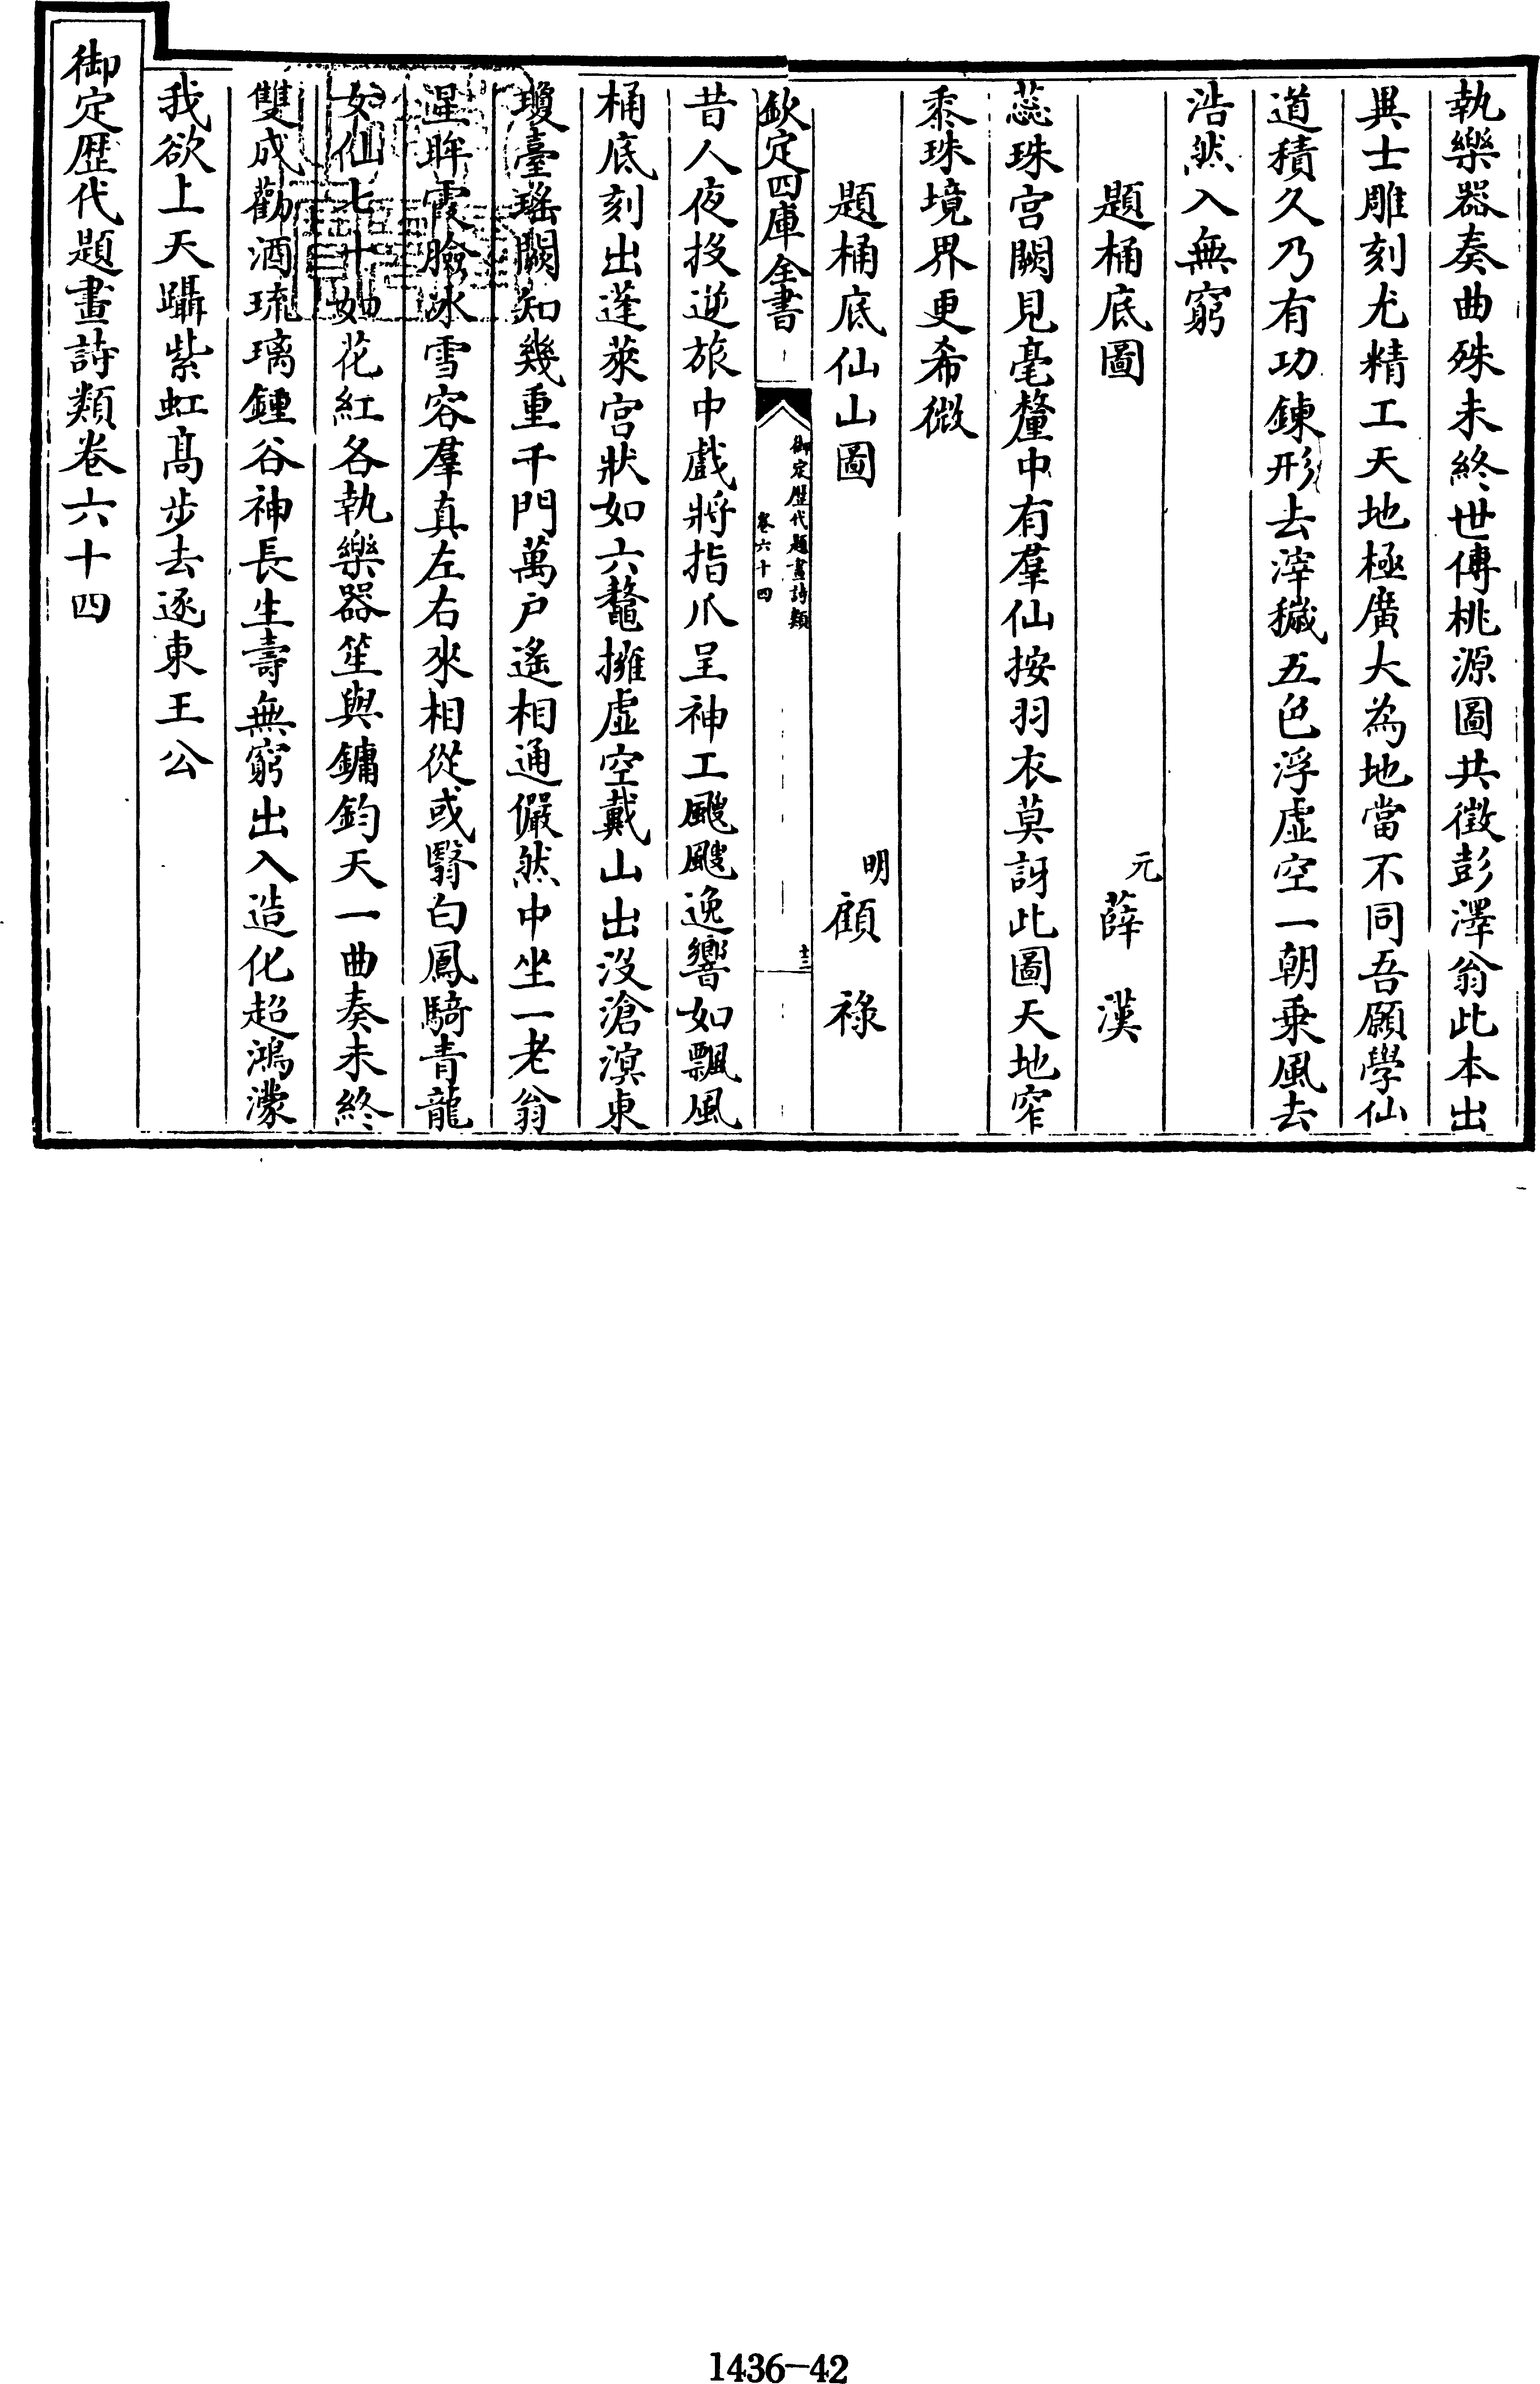 執樂器奏曲殊未終世傳桃源圖共徵彭澤翁此本出
異士雕刻尤精工天地極廣大為地當不同吾願學仙
道積久乃有功鍊形去滓穢五色浮虛空一朝乗風去
浩然入無窮
題桶底圖 元 薛漢
蕊珠宫闕見毫釐中有羣仙按羽衣莫訝此圖天地窄
黍珠境界更希微
題桶底仙山圖 明 顧祿
欽定四庫全書 御定歴代題畫詩類 卷六十四 十三
昔人夜投逆旅中戲將指爪呈神工颼颼逸響如飄風
桶底刻出蓬萊宫狀如六鼇擁虚空戴山出沒滄溟東
瓊臺瑤闕知幾重千門萬户遙相通儼然中坐一老翁
星眸霞臉冰雪容羣真左右來相從或翳白鳳騎青龍
女仙七十如花紅各執樂器笙與鏞鈞天一曲奏未終
雙成勸酒琉璃鍾谷神長生壽無窮出入造化超鴻濛
我欲上天躡紫虹髙步去逐東王公
御定歴代題畫詩類卷六十四
1436-42